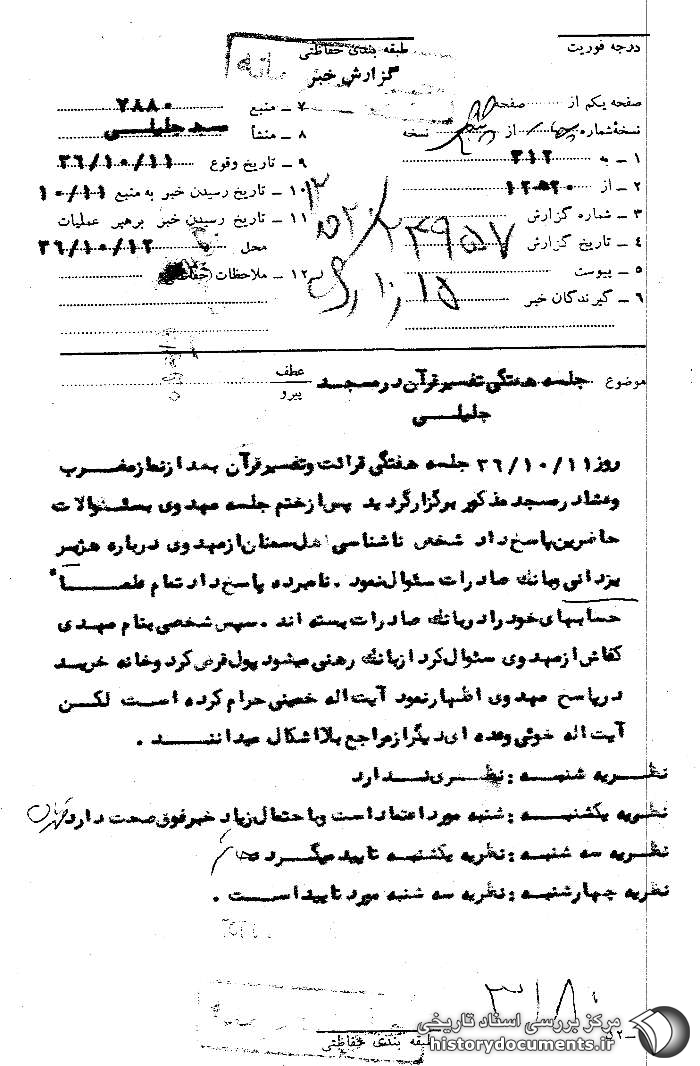 درجه فوریت
طبقه بندی حفاظتی
گزارش خبر
صفحه یکم از صفحه
نسخهٔ شماره از نسخه
۱ ـ به ۳۱۲
۲ ـ از
۳ ـ شماره گزارش
۴ ـ تاریخ گزارش
۵ ـ پیوست
۶ ـ گیرندگان خبر
۷ ـ منبع ۷۸۸۰
۸ ـ منشأ مسجد جلیلی
۹ ـ تاریخ وقوع ۳۶/۱۰/۱۱
۱۰ ـ تاریخ رسیدن خبر به منبع ۱۰/۱۱
۱۱ ـ تاریخ رسیدن خبر برهبر عملیات
محل ۳۶/۱۰/۱۲
۱۲ ـ ملاحظات حفاظتی
موضوع جلسه هفتگی تفسیر قرآن در مسجد
جلیلی
عطف
پیرو
روز ۳۶/۱۰/۱۱ جلسه هفتگی قرائت و تفسیر قرآن بعد از نماز مغرب
و عشا در مسجد مذکور برگزار گردید پس از ختم جلسه مهدوی بسئوالات
حاضرین پاسخ داد شخص ناشناسی اهل سمنان از مهدوی درباره هژبر
یزدانی و بانک صادرات سئوال نمود . نامبرده پاسخ داد تمام علما
حسابهای خود را در بانک صادرات بسته اند . سپس شخصی بنام مهدی
کفاش از مهدوی سئوال کرد از بانک رهنی میشود پول قرض کرد و خانه خرید
در پاسخ مهدوی اظهار نمود آیت اله خمینی حرام کرده است لکن
آیت اله خوئی و عده ای دیگر از مراجع بلا اشکال میدانند .
نظریه شنبه : نظری ندارد
نظریه یکشنبه : شنبه مورد اعتماد است و با احتمال زیاد خبر فوق صحت دارد
نظریه سه شنبه : نظریه یکشنبه تایید میگردد
نظریه چهارشنبه : نظریه سه شنبه مورد تایید است .
طبقه بندی حفاظتی
مرکز بررسی اسناد تاریخی
historydocuments.ir